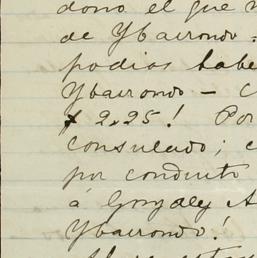 dono el que
de Ybairondo =
podias habe
Ybairondo - C
$ 2.25! Por
Consulado; c
por conducto
á Gonzalez A
Ybairondo!